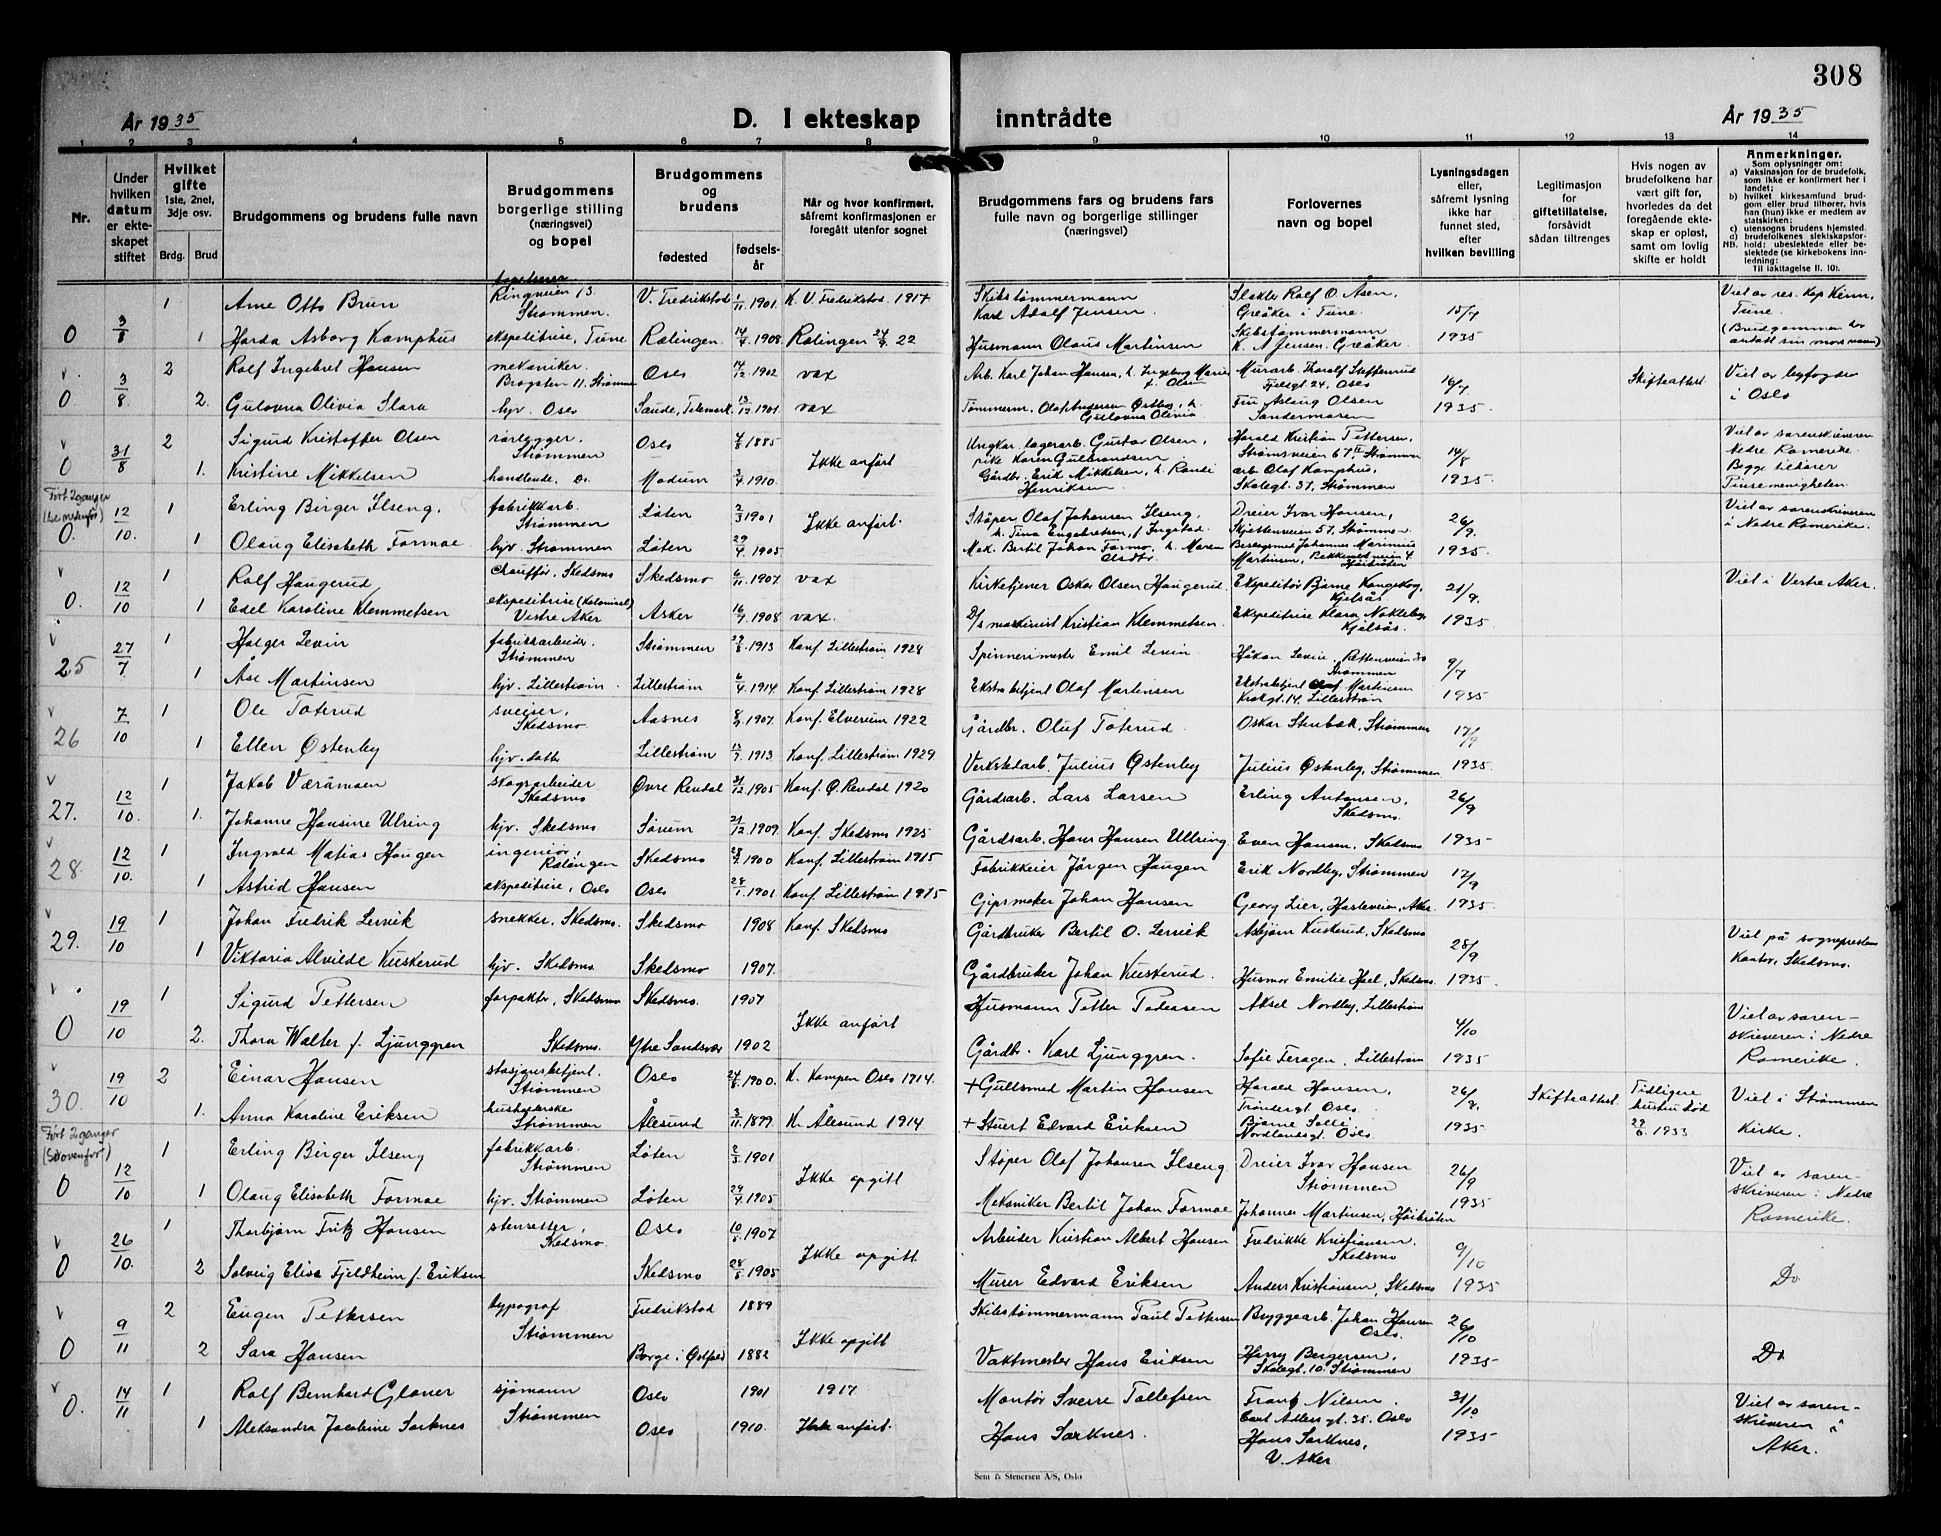 308
År 1935
D. I ekteskap inntrådte
År 1935
1 2 3 4 5 6 7 8 9 10 11 12 13 14
Nr.
Under hvilken datum er ekteskapet stiftet
Hvilket gifte 1ste, 2net, 3dje osv.
Brdg. Brud
Brudgommens og brudens fulle navn
Brudgommens borgerlige stilling (næringsvei) og bopel
Brudgommens og brudens
fødested
fødselsår
Når og hvor konfirmert, såfremt konfirmasjonen er foregått utenfor sognet
Brudgommens fars og brudens fars fulle navn og borgerlige stillinger (næringsvei)
Forlovernes navn og bopel
Lysningsdagen eller, såfremt lysning ikke har funnet sted, efter hvilken bevilling
Legitimasjon for giftetillatelse, forsåvidt sådan tiltrenges
Hvis nogen av brudefolkene har vært gift før, hvorledes da det foregående ekteskap er opløst, samt om lovlig skifte er holdt
Anmerkninger.
Som oplysninger om:
a) Vaksinasjon for de brudefolk, som ikke er konfirmert her i landet;
b) hvilket kirkesamfund brudgom eller brud tilhører, hvis han (hun) ikke er medlem av statskirken;
c) utensogns brudens hjemsted.
d) brudefolkenes slektskapsforhold: ubeslektede eller beslektede (se kirkebokens innledning:
NB. Til iakttagelse II. 10).
0 3/8 1 Arne Otto Brun Ringveien 13 Strømmen. V. Fredrikstad 1/11 1901. K. V. Fredrikstad 1917 Skibstømmermann Karl Adolf Jensen. Slakter Rolf O. Åsen, Greåker i Tune. 15/7 1935 Viet av res. kap. Tune.
1 Harda Asborg Kamphus ekspeditrise, Tune Rælingen 14/4 1908 Rælingen 24/9 22 Husmann Olaus Martinsen Skibstømmermann K. A. Jensen. Greåker (Brudgommen har antatt sin mors navn)
v. 0 3/8 2 Rolf Ingebret Hansen mekaniker. Oslo 14/12 1902 vax Arb. Karl Johan Hansen, h. Ingeborg Marie f. Olsen Murarb. Thoralf Steffensrud Oslo 16/7 1935. Skifteattest. Viet av byfogden i Oslo
2. Gulovna Olivia Slara hjv. Oslo Saude, Telemark. 13/12 1901 vax Tømmerm. Olaf Andersen Østby, h. Gulovna Olivia Fru Aslaug Olsen Sandermoren
v 0 31/8 2 Sigurd Kristoffer Olsen rørlegger. Strømmen Oslo 4/8 1885 Ikke anført Ungkar, lagerarb. Gustav Olsen, pike Karen Gulbrandsen Harald Kristian Pettersen, Strømsveien 67 II Strømmen 14/8 1935 Viet av sorenskriveren Nedre Romerike Begge tilhører Pinsemenigheten.
1. Kristine Mikkelsen handlende, Do. Modum 3/4 1910. Gårdbr. Erik Mikkelsen, h. Randi Henriksen arb. Olaf Kamphus, Skolegt. 37, Strømmen
Ført 2 ganger (se nedenfor) 0. 12/10. 1 Erling Birger Ilseng, fabrikkarb. Strømmen Løten 2/3 1901 Ikke anført. Støper Olaf Johansen Ilseng, h. Tina Engebretsen, f. Ingstad. Dreier Ivar Hansen, Skjettenveien 57, Strømmen. 26/9. 1935 Viet av sorenskriveren i Nedre Romerike.
1 Olaug Elisabeth Formoe hjv. Strømmen Løten 29/4 1905 Mek. Bertil Johan Formo, h. Maren Olsdtr. Johannes Marinius Martinsen,
v 0. 12/10 1 Rolf Haugerud, chauffør, Skedsmo Skedsmo 6/11 1907 vax Kirketjener Oskar Olsen Haugerud. Ekspeditør Bjarne Kongskog, Kjelsås. 21/9. 1935. Viet i Vestre Aker.
1 Edel Karoline Klemmetsen ekspeditrise (kolonial) Vestre Aker Asker 16/7 1908 vax. D/s maskinist Kristian Klemmetsen. Ekspeditrise Klara Nokleby Kjelsås.
v 25 27/7 1 Holger Levin fabrikkarbeider. Strømmen Strømmen 29/6 1913 Konf. Lillestrøm 1929 Spinnerimester Emil Levin. Håkon Levin. Strømmen 9/7 1935
1 Åse Martinsen hjv. Lillestrøm. Lillestrøm 6/4 1914 Konf. Lillestrøm 1928 Ekstrabetjent Olaf Martinsen Ekstrabetjent Olaf Martinsen Lillestrøm
v 26 7/10 1 Ole Toterud sveiser, Skedsmo Aasnes 1907. Konf. Elverum 1922 Gårdbr. Oluf Toterud. Oskar Stubak, Strømmen 17/9 1935.
1 Ellen Østenby hjv. datt. Lillestrøm 13/7 1913. Konf. Lillestrøm 1929 Verkstedarb. Julius Østenby Julius Østenby, Strømmen
v 27. 12/10. 1 Jakob Væråmoen skogsarbeider Skedsmo Øvre Rendal 31/12 1905 Konf. Ø. Rendal 1920 Gårdsarb. Lars Larsen Erling Antonsen, Skedsmo. 26/9 1935
1. Johanne Hansine Ulring hjv. Skedsmo Sørum 21/12 1909. Konf. Skedsmo 1925 Gårdsarb. Hans Hansen Ullring Even Hansen, Skedsmo
v 28. 12/10. 1 Ingvald Matias Haugen ingeniør, Rælingen Skedsmo 1900 Konf. Lillestrøm 1915 Fabrikkeier Jørgen Haugen Erik Nordby, Strømmen 17/9 1935.
1 Astrid Hansen ekspeditrise, Oslo Oslo 28/1 1901 Konf. Lillestrøm 1915 Gipsmaker Johan Hansen Georg Lier, Hasleveien, Aker.
v 29. 19/10 1 Johan Fredrik Lervik snekker, Skedsmo. Skedsmo 1908 Konf. Skedsmo Gårdbruker Bertil O. Lervik Asbjørn Kuskerud, Skedsmo 28/9 1935. Viet på sogneprestens kontor, Skedsmo.
1 Viktoria Alvilde Kuskerud hjv. Skedsmo. Skedsmo 1907. Gårdbruker Johan Kuskerud. Husmor Emilie Hoel, Skedsmo.
v. 0 19/10 1 Sigurd Pettersen forpakter, Skedsmo Skedsmo. 1907 Ikke anført Husmann Petter Pedersen Aksel Nordby, Lillestrøm 4/10 1935 Viet av sorenskriveren i Nedre Romerike.
2. Thora Walter f. Ljunggren Skedsmo. Ytre Sandsvær 1902 Gårdbr. Karl Ljunggren. Sofie Feragen. Lillestrøm
v 30. 19/10 2 Einar Hansen stasjonsbetjent. Strømmen Oslo 24/8 1900. K. Kampen Oslo 1914. + Gullsmed Martin Hansen Harald Hansen, Trøndergt. Oslo. 26/9. 1935 Skifteattest. Tidligere hustru død 29/6. 1933. Viet i Strømmen Kirke.
1. Anna Karoline Eriksen husholderske Strømmen Ålesund 3/11 1899 K. Ålesund 1914 + Stuert Edvard Eriksen Bjarne Solli Nordlandsgt. Oslo
Ført 2 ganger (Se ovenfor) 0 12/10 1 Erling Birger Ilseng fabrikkarb. Strømmen Løten 2/3 1901 Ikke opgitt Støper Olaf Johansen Ilseng. Dreier Ivar Hansen Strømmen 26/9 1935 Viet av sorenskriveren i Nedre Romerike.
1 Olaug Elisabeth Formoe hjv. Strømmen Løten 29/4 1905 Mekaniker Bertil Johan Formoe Johannes Martinsen, Høibråten
v 0 26/10. 1 Thorbjørn Fritz Hansen stensetter, Skedsmo Oslo 10/5 1907 Ikke opgitt Arbeider Kristian Albert Hansen Fredrikke Kristiansen. Skedsmo 9/10 1935 Do
2 Solveig Elise Fjeldheim f. Eriksen Skedsmo 28/5 1905 Murer Edvard Eriksen Anders Kristiansen, Skedsmo
v 0 9/11 2 Eugen Pettersen typograf Strømmen Fredrikstad 1889 Ikke opgitt Skibstømmermann Paul Pettersen Byggearb. Johan Hansen Oslo. 26/10 1935 Do
2 Sara Hansen Borge i Østfold 1882 Vaktmester Hans Eriksen Harry Bergersen, Skolegt. 10. Strømmen
v 0. 14/11 1 Rolf Bernhard Gloner sjømann Strømmen Oslo 1901 1917 Montør Sverre Tollefsen Frantz Nilsen. Oslo 31/10. 1935 Viet av sorenskriveren i Aker.
1 Aleksandra Jacobine Sørknes Oslo 1910. Ikke anført. Hans Sørknes. Hans Sørknes, V. Aker
Sem & Stenersen A/S, Oslo